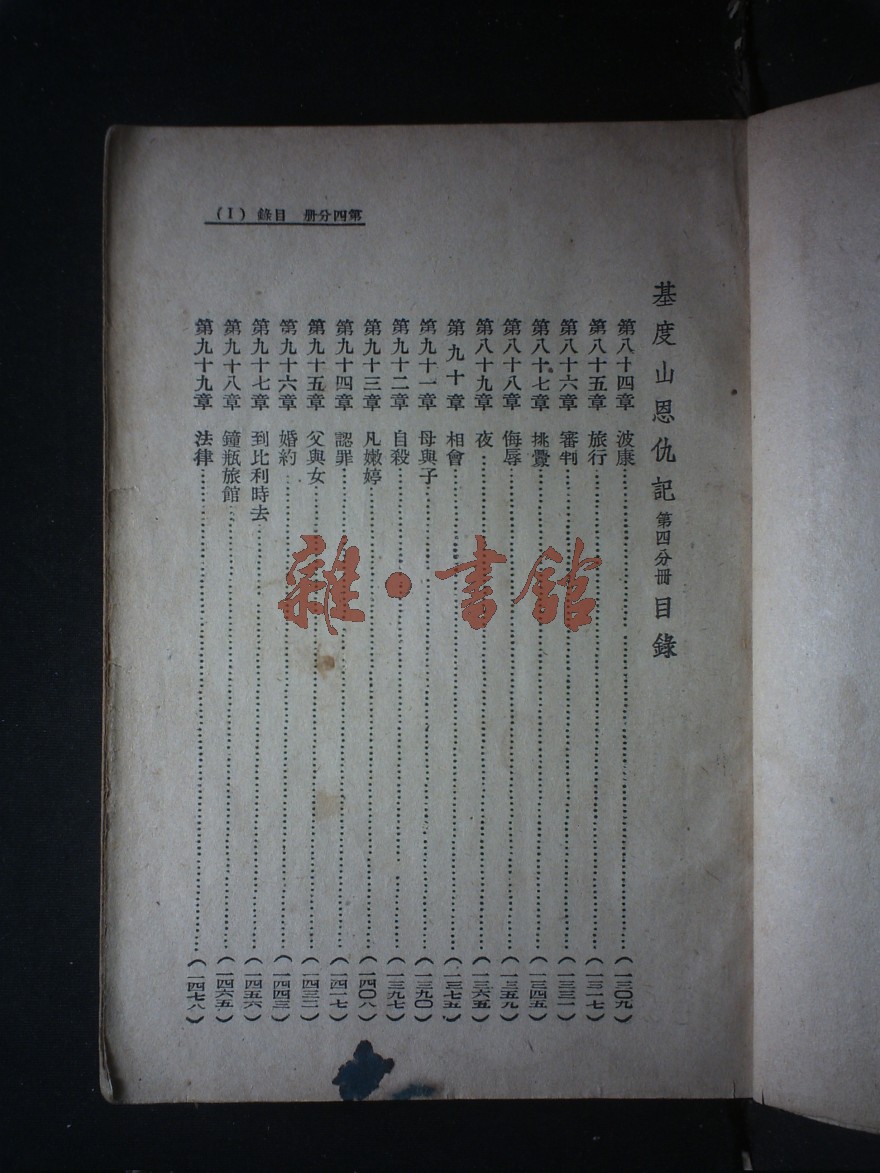 第四分册 目錄 (1)
基度山恩仇記 第四分冊 目錄
第八十四章 波康……(一三〇九)
第八十五章 旅行……(一三一七)
第八十六章 審判……(一三三一)
第八十七章 挑釁……(一三四五)
第八十八章 侮辱……(一三五九)
第八十九章 夜……(一三六五)
第九十章 相會……(一三七五)
第九十一章 母與子……(一三九〇)
第九十二章 自殺……(一三九七)
第九十三章 凡嫩婷……(一四〇八)
第九十四章 認罪……(一四一七)
第九十五章 父與女……(一四三二)
第九十六章 婚約……(一四四三)
第九十七章 到比利時去……(一四五六)
第九十八章 鐘瓶旅館……(一四六五)
第九十九章 法律……(一四七八)
雜·書館